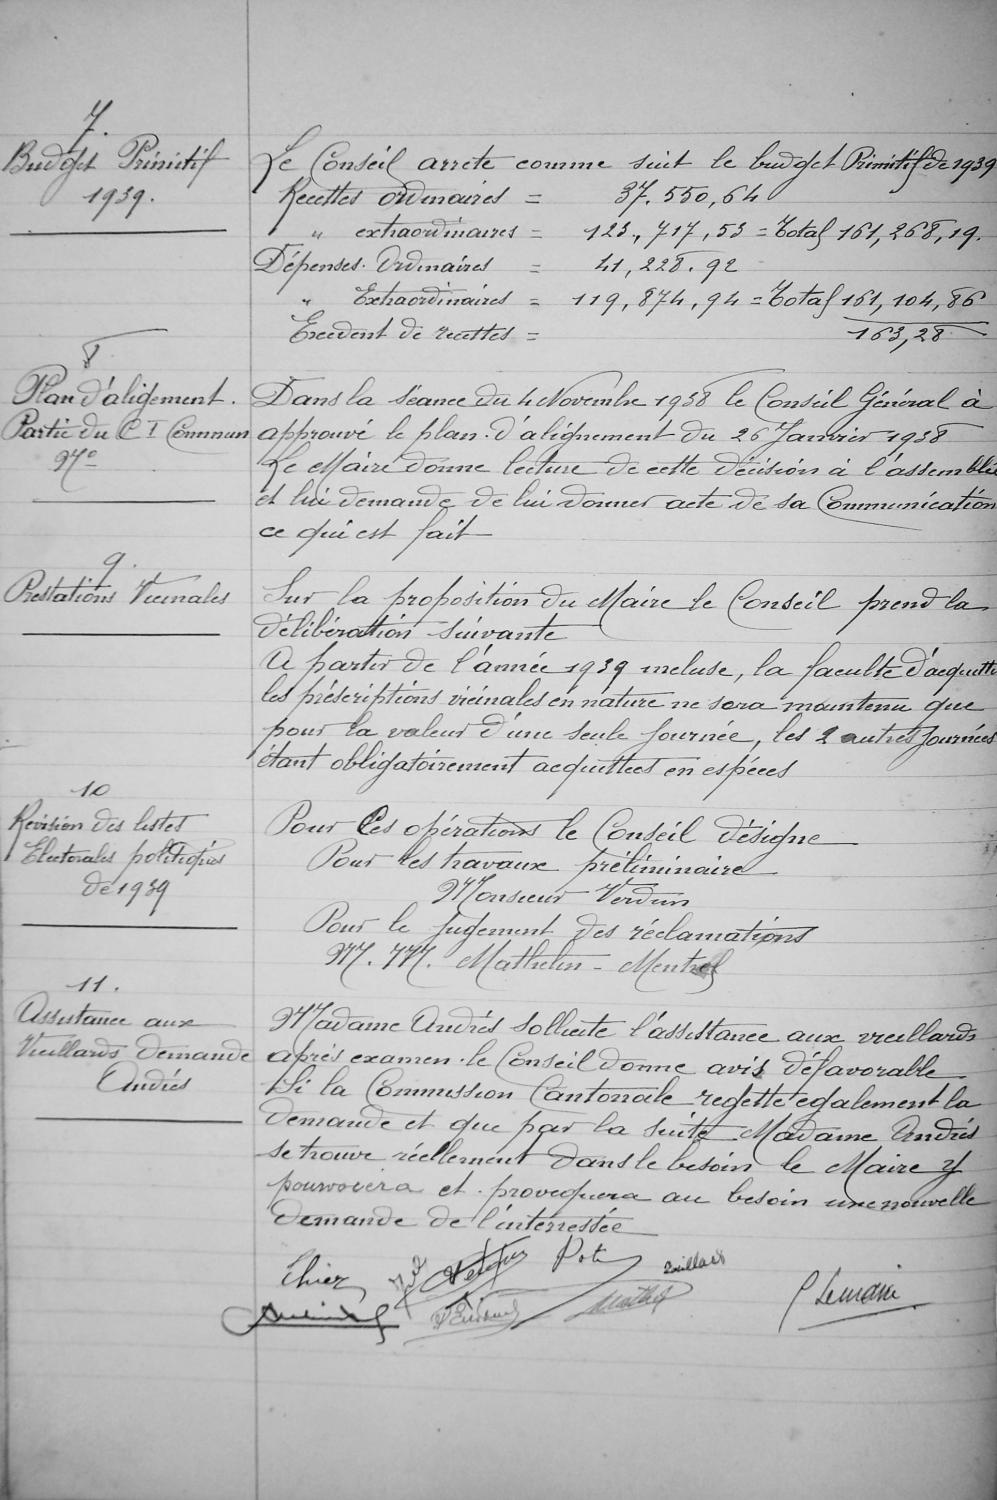 7.
Budget Primitif
1939.
Le Conseil arrete comme suit le budget Primitif de 1939
Recettes ordinaires = 37.550,64
" extraordinaires = 123,717,53 = Total 161,268,19.
Dépenses. Ordinaires = 41,228.92
" Extraordinaires = 119,874,94 = Total 161,104,86
Excedent de recettes = 163,28
8.
Plan d'aligement.
Partie du C I Commun
Dans la séance du 4 Novembre 1938 le Conseil Général à
approuvé le plan d'alignement du 26 Janvier 1938
Le Maire donne lecture de cette décision à l'assemblée
et lui demande de lui donner acte de sa Communication
ce qui est fait
9.
Prestations Vicinales
Sur la proposition du Maire le Conseil prend la
délibération suivante
A partir de l'année 1939 incluse, la faculté d'acquitter
les préscriptions vicinales en nature ne sera maintenu que
pour la valeur d'une seule journée, les 2 autres journées
étant obligatoirement acquittees en espéces
10
Revision des listes
Electorales politiques
de 1939
Pour Ces opérations le Conseil désigne
Pour les travaux préliminaire
Monsieur Verdun
Pour le jugement des réclamations
M. M. Mathelin - Mentrel
11.
Assistance aux
Vieillards Demande
Andrés
Madame Andrés sollicite l'assistance aux vieillards
aprés examen le Conseil donne avis défavorable
Si la Commission Cantonale regette egalement la
demande et que par la suite Madame Andrés
se trouve réellement dans le besoin le Maire y
pourvoiera et provoquera au besoin une nouvelle
demande de l'interressée
Thiez
Pot
P Lemoine